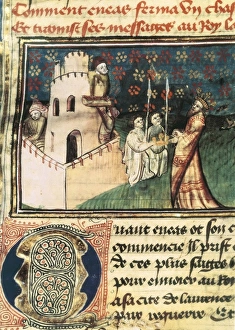 Comment eneas ferma Un chas
et tramist ses messages au Roy la
Quant eneas ot son c
commencie il prist
de ces plus sages
pour enuoier au
a sa cite de laurence
par